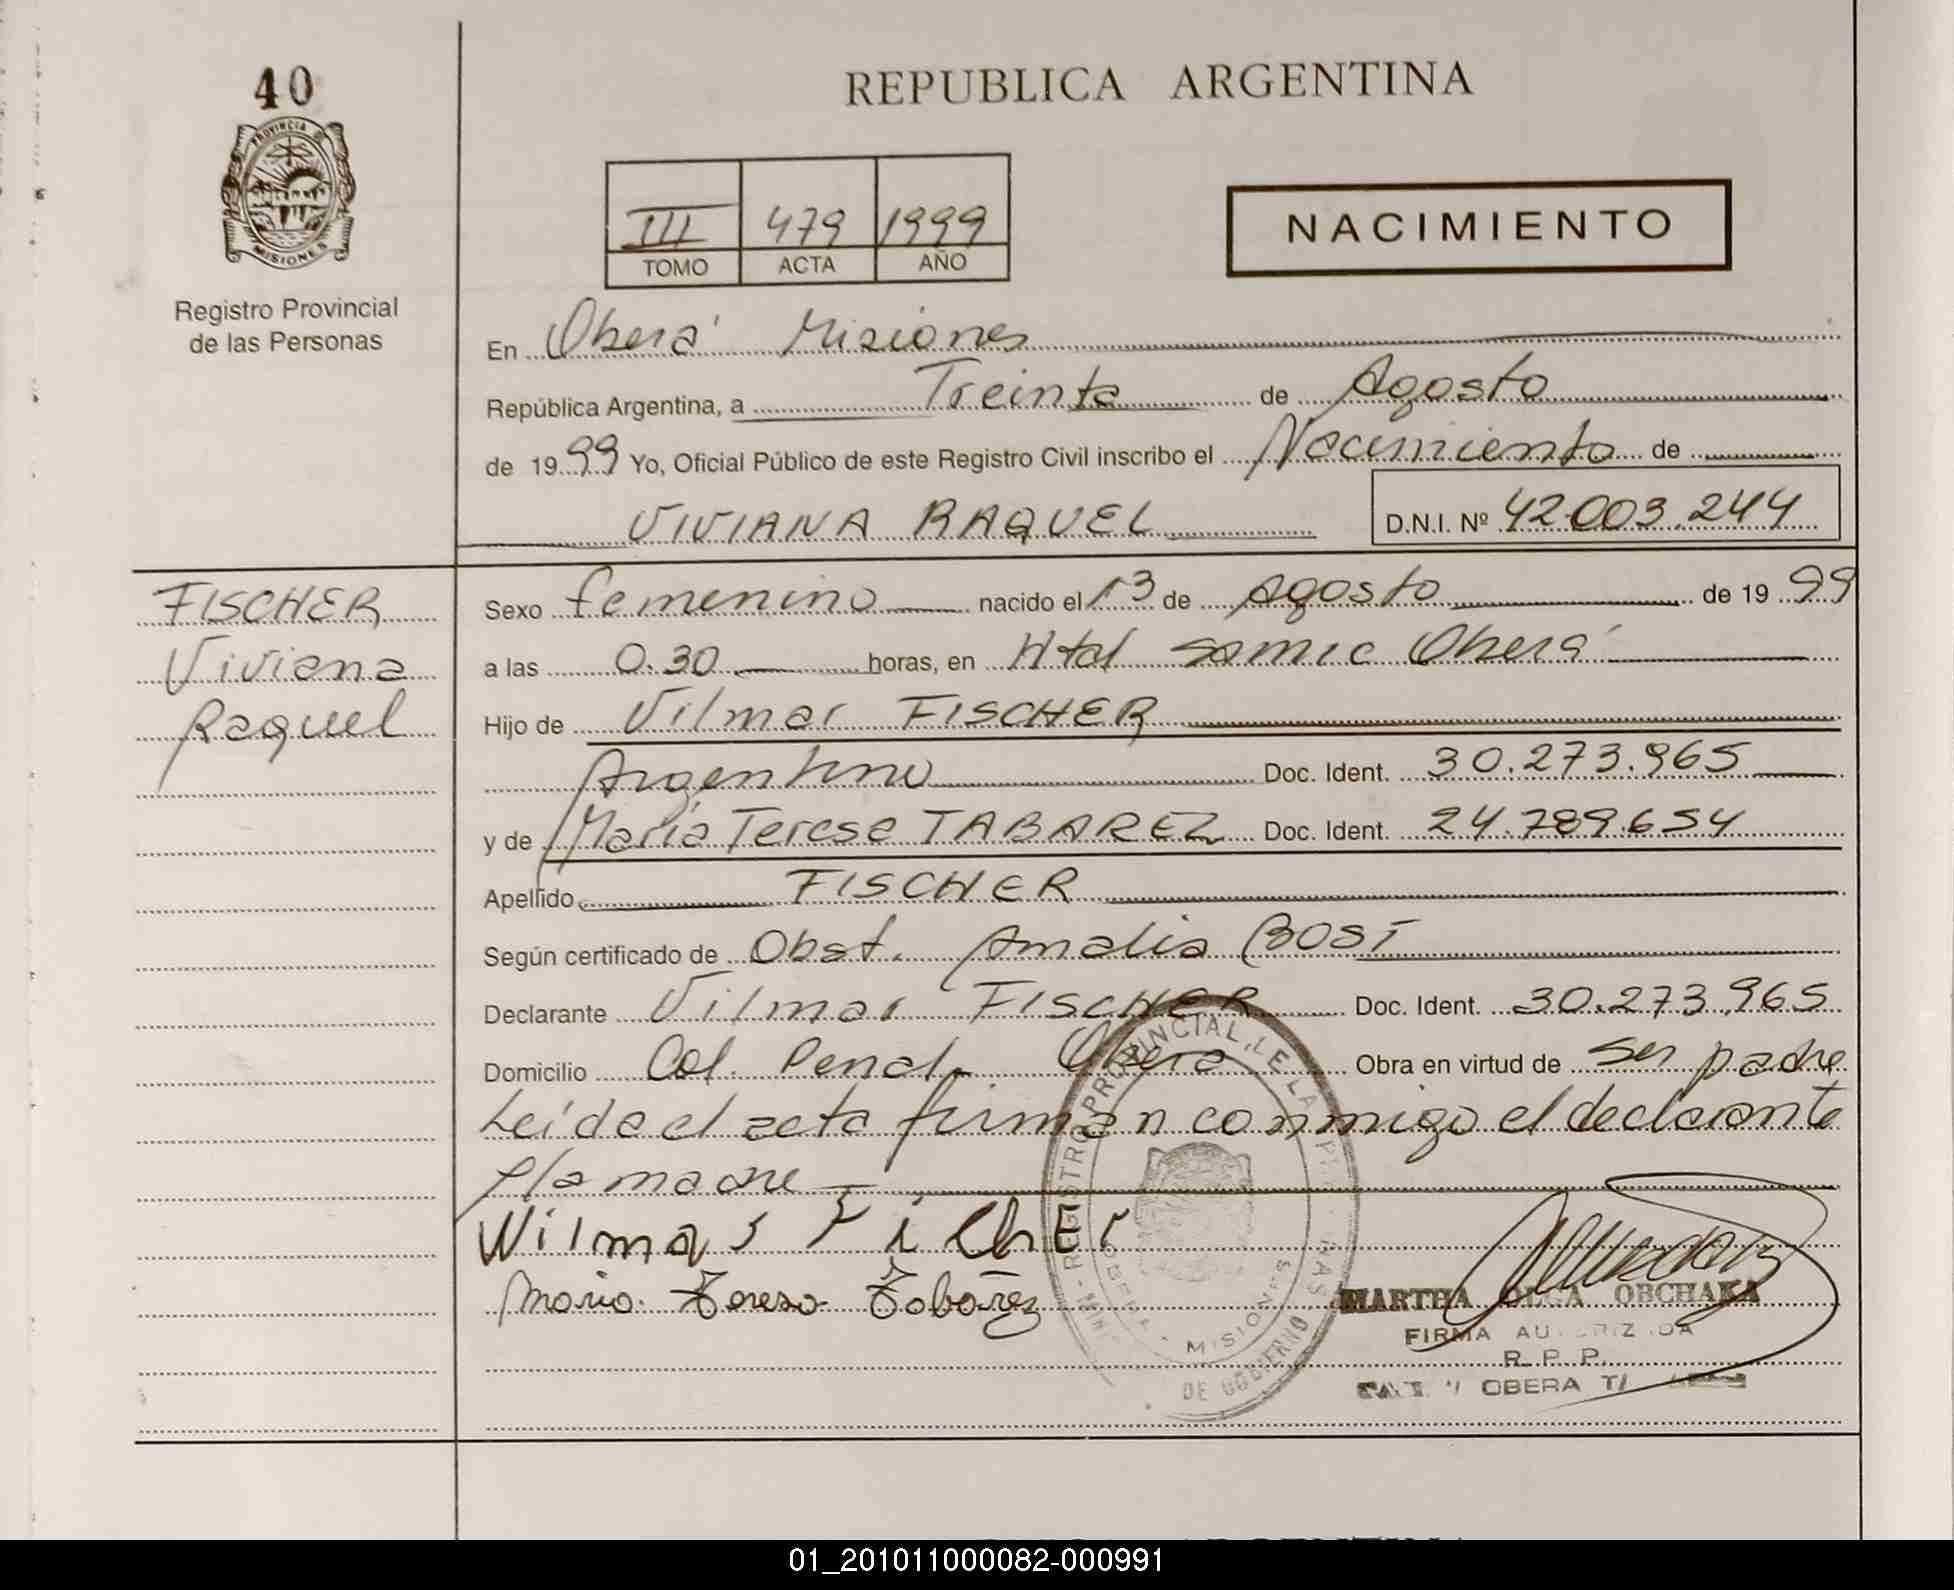 40
REPUBLICA ARGENTINA
PROVINCIA
MISIONES
Registro Provincial
de las Personas
III 479 1999
TOMO ACTA AÑO
NACIMIENTO
En Oberá Misiones
República Argentina, a Treinta de Agosto
de 1999 Yo, Oficial Público de este Registro Civil inscribo el Nacimiento de
VIVIANA RAQUEL D.N.I. Nº 42.003.244
FISCHER
Viviana
Raquel
Sexo femenino nacido el 13 de Agosto de 1999
a las 0.30 horas, en Htal Samic Oberá
Hijo de Vilmar FISCHER
Argentino Doc. Ident. 30.273.965
y de María Teresa TABAREZ Doc. Ident. 24.789.654
Apellido FISCHER
Según certificado de Obst. Amalia BOST
Declarante Vilmar FISCHER Doc. Ident. 30.273.965
Domicilio Col. Penal. Oberá Obra en virtud de ser padre
Leída el acta firman conmigo el declarante
y la madre
Wilmar Ficher
Maria Tereza Tobarez
MARTHA OLGA ORCHAKA
FIRMA AUTORIZADA
R. P. P.
OBERA
REGISTRO PROVINCIAL DE LAS
MISIONES
DE GOBIERNO
01_201011000082-000991